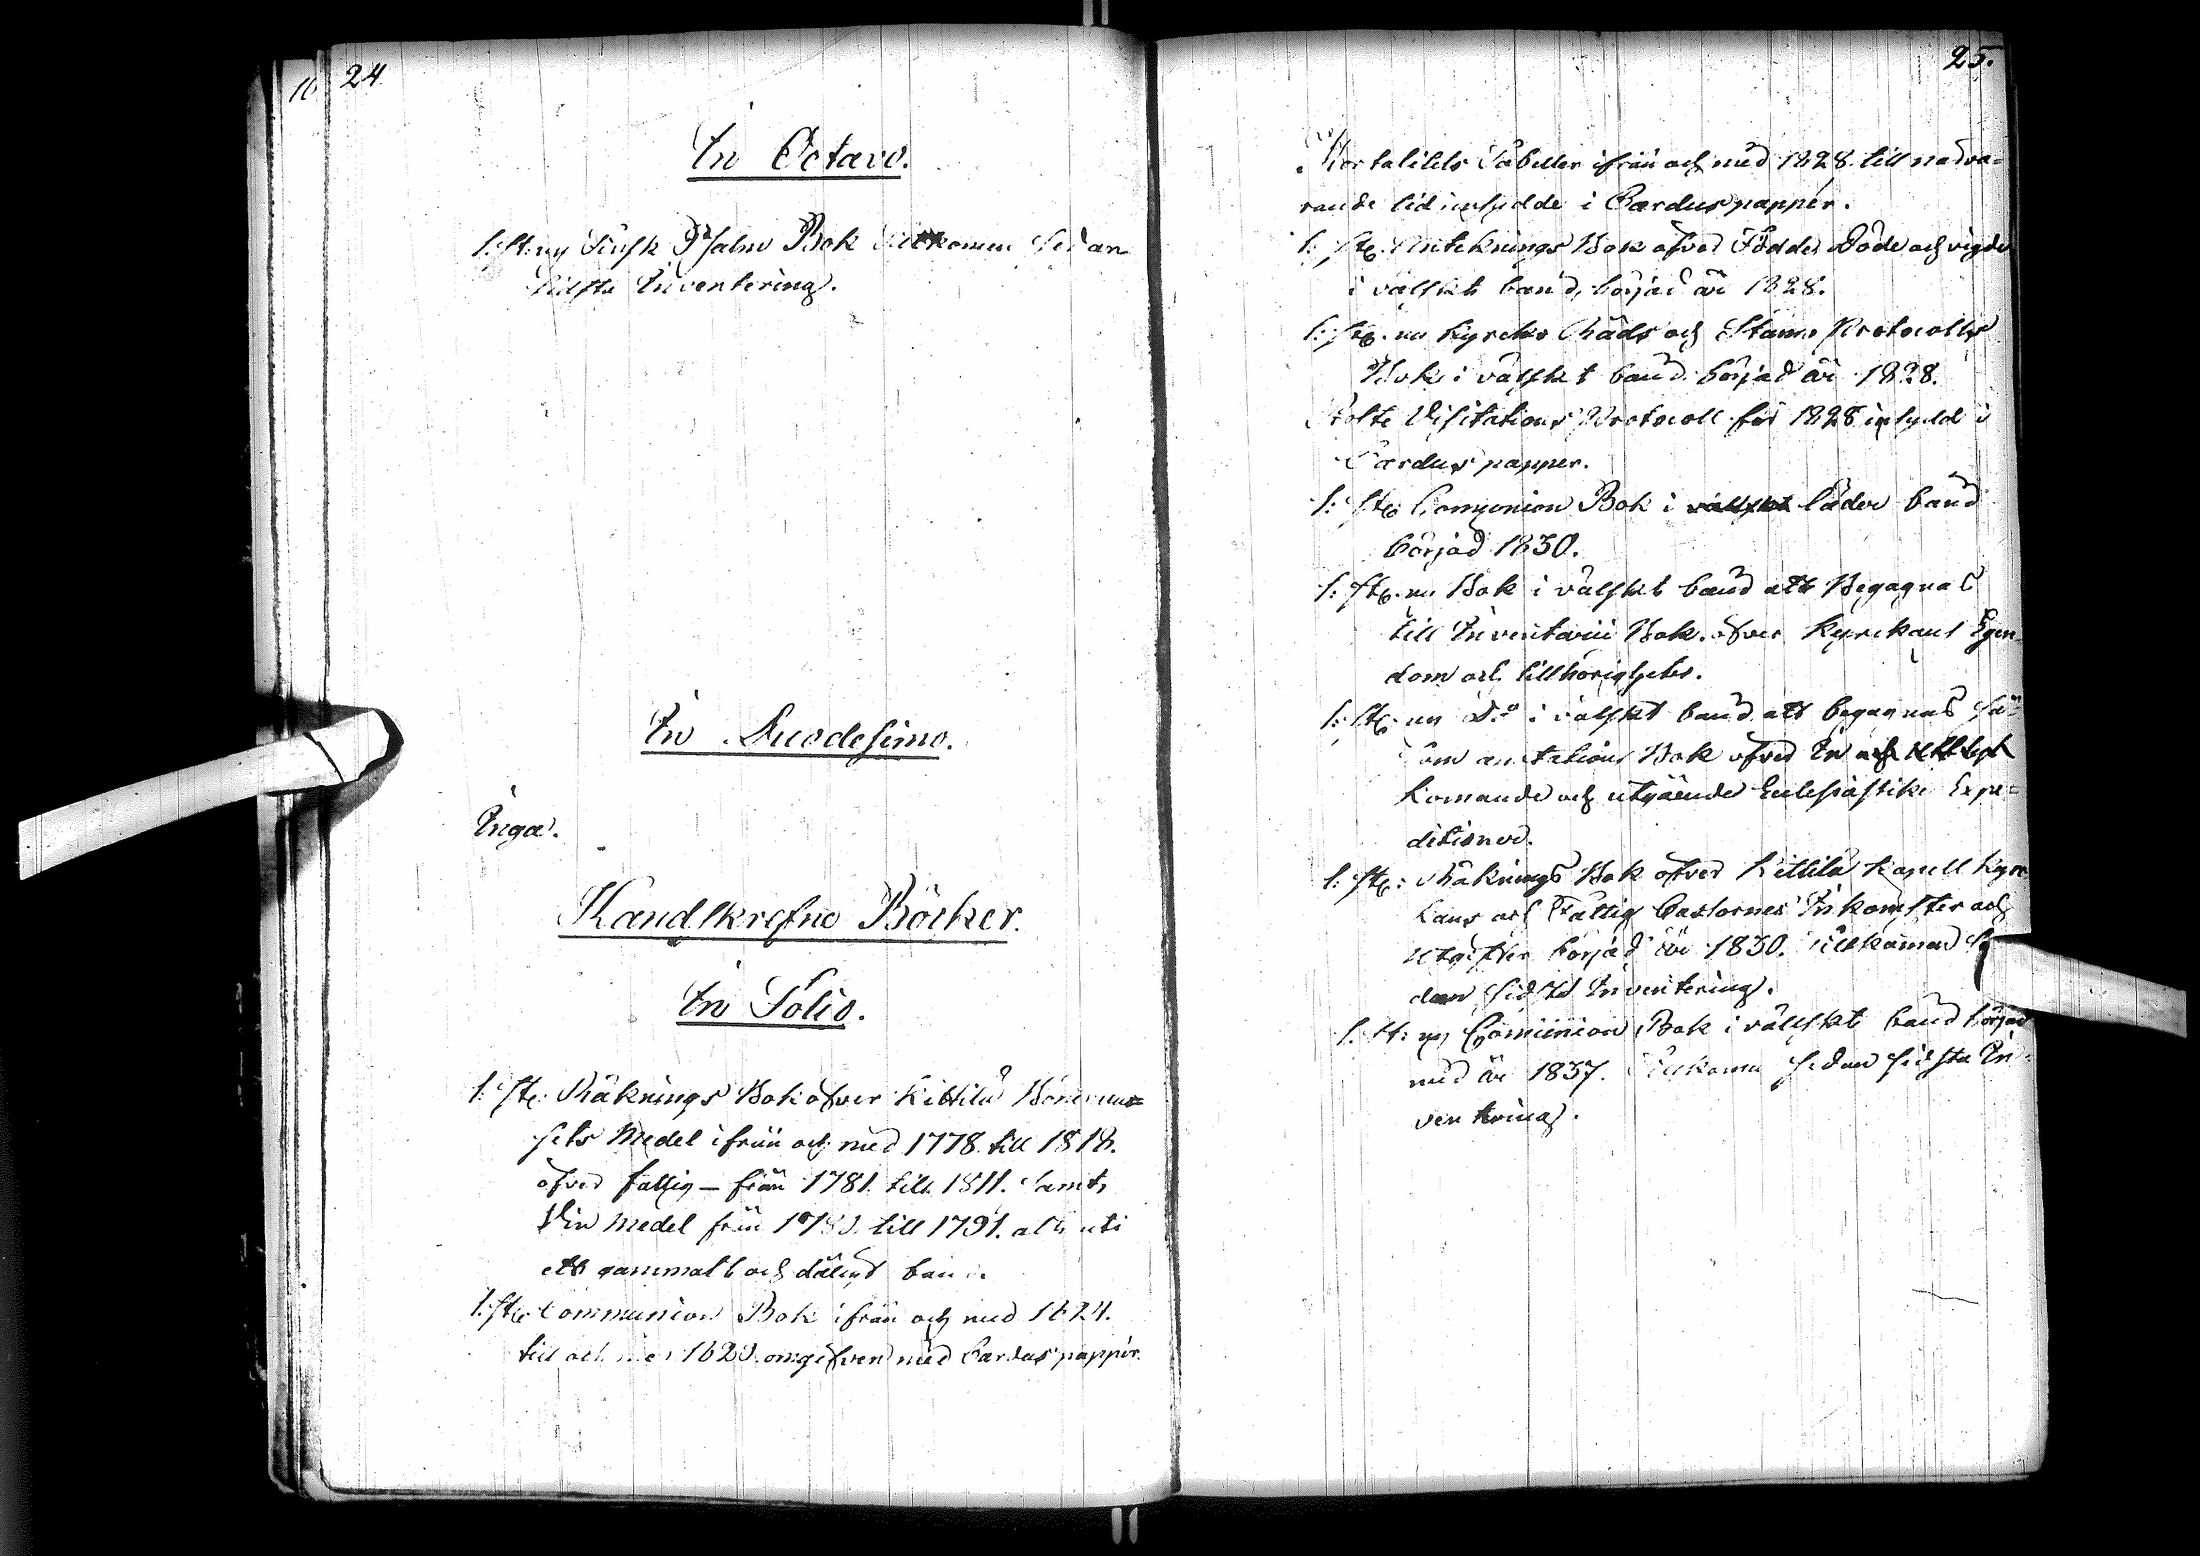 24
In Octavo.
1: st: ny Finsk Psalm Bok tillkommen sedan
sidsta Inventering.
In Duodesimo.
Inga.
Handskrefne Böcker.
In Folio.
1: st: Räknings Bok öfver Kittilä Bönehu=
sets Medel ifrån och med 1778. till 1818.
öfver fattig – från 1781. till 1811. samt
Vin Medel från till 1791. alt uti
ett gammalt och dåligt band.
1: st: Communion Bok ifrån och med 1824.
till och med omgifven med Cardus papper.
25.
Mortalitets Tabeller ifrån och med 1828. till nadva=
rande tid insydde i Cardus papper.
1: st: Anteknings Bok öfver Födde, Döde och vigde
i välskt band, börjad år 1828.
1: st: ny Kyrcko Råds och Stamn Protocolls
Bok i välskt band börjad år 1828.
Visitations Protocoll för 1828 insydd i
Cardus papper.
1: st: Comunion Bok i välskt läder band
börjad 1830.
1: st: ny Bok i välskt band att Begagnas
till Inventarii Bok öfver Kyrckans Egen
dom och tillhörigheter.
1: st: ny D:o i välskt band att begagnas så=
som anotations Bok öfver In och
komande och utgående Eclesiastike Expe=
ditioner.
1: st: Räknings Bok öfver Kittilä Kapell Kyrc
kans och Fattig Cassornes Inkomster och
utgifter börjad år 1830. tillkommen se
dan sidsta Inventering.
1: st: ny Comunion Bok i välskt band börjad
med år 1837. Tillkommen sedan sidsta In=
ventering.